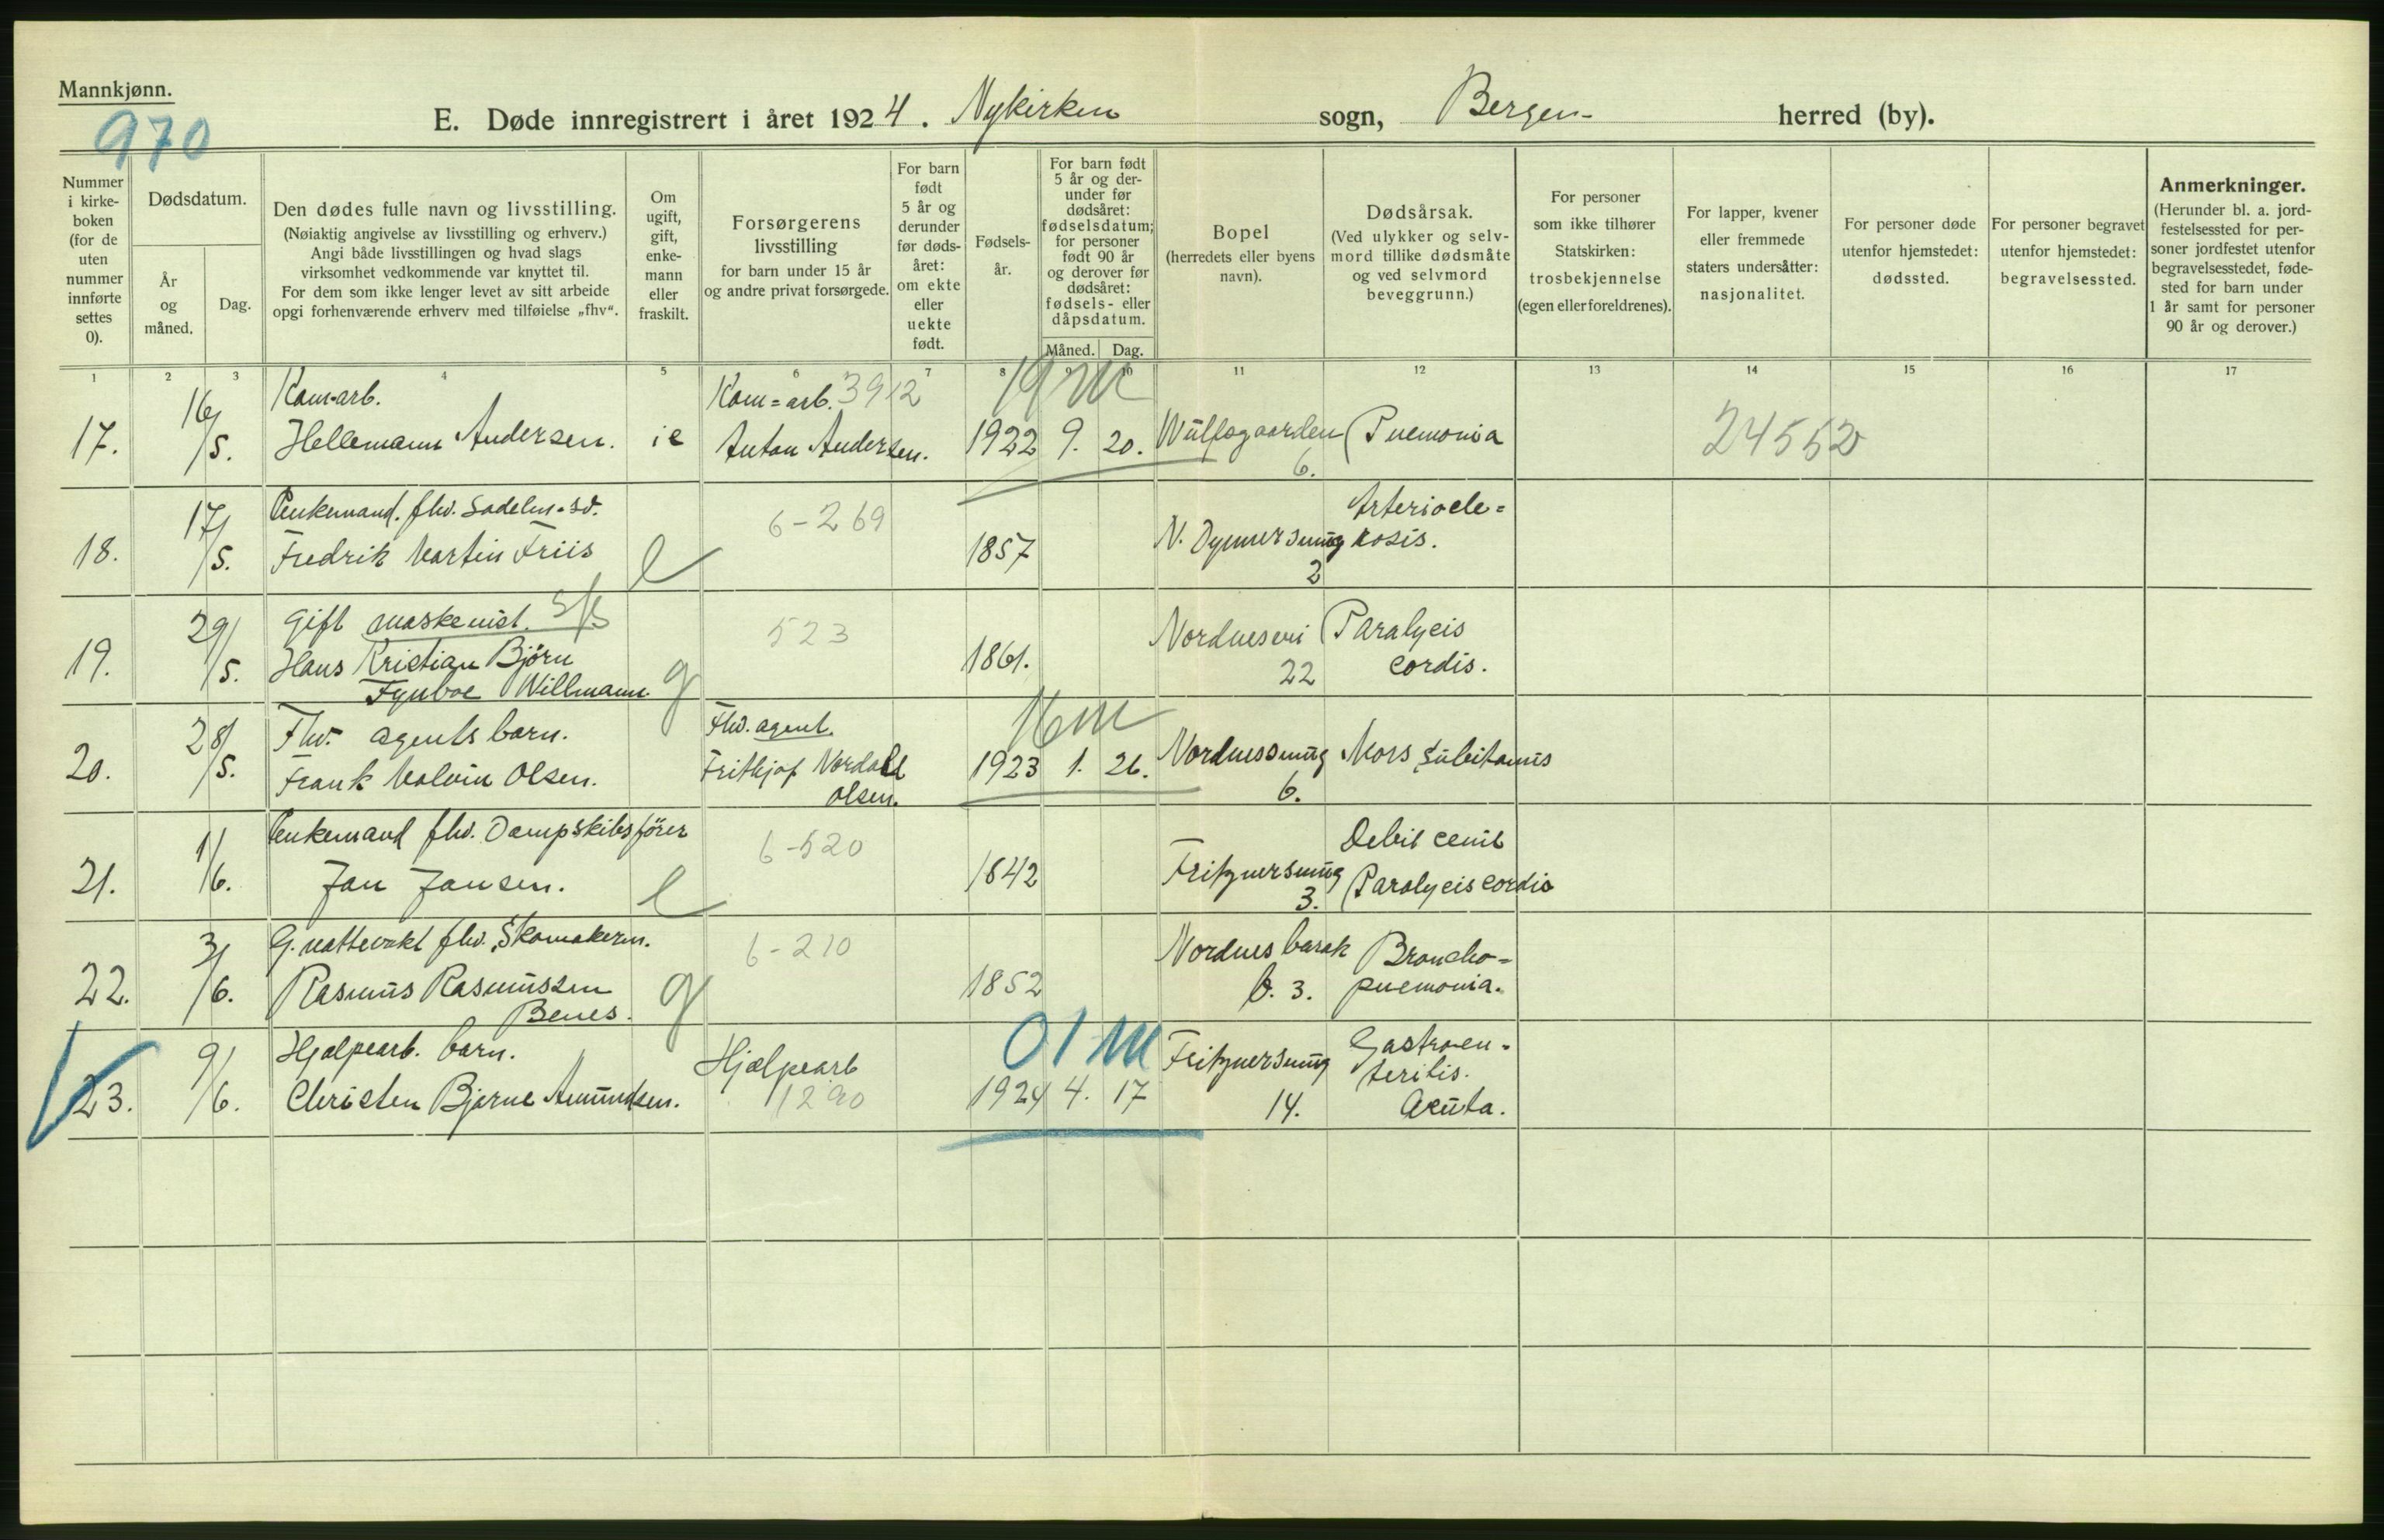 Mannkjønn.
970
E. Døde innregistrert i året 1924. Nykirken sogn, Bergen herred (by).
Nummer i kirke-boken (for de uten nummer innførte settes 0).
Dødsdatum.
År og måned.
Dag.
Den dødes fulle navn og livsstilling.
(Nøiaktig angivelse av livsstilling og erhverv.)
Angi både livsstillingen og hvad slags
virksomhet vedkommende var knyttet til.
For dem som ikke lenger levet av sitt arbeide
opgi forhenværende erhverv med tilføielse „fhv“.
Om ugift, gift, enke-mann eller fraskilt.
Forsørgerens livsstilling
for barn under 15 år
og andre privat forsørgede.
For barn født 5 år og derunder før døds-året: om ekte eller uekte født.
Fødsels-år.
For barn født 5 år og der-under før dødsåret: fødselsdatum; for personer født 90 år og derover før dødsåret: fødsels- eller dåpsdatum.
Måned. Dag.
Bopel
(herredets eller byens navn).
Dødsårsak.
(Ved ulykker og selv-mord tillike dødsmåte og ved selvmord beveggrunn.)
For personer som ikke tilhører Statskirken: trosbekjennelse (egen eller foreldrenes).
For lapper, kvener eller fremmede staters undersåtter: nasjonalitet.
For personer døde utenfor hjemstedet: dødssted.
For personer begravet utenfor hjemstedet: begravelsessted.
Anmerkninger.
(Herunder bl. a. jord-festelsessted for per-soner jordfestet utenfor begravelsesstedet, føde-sted for barn under 1 år samt for personer 90 år og derover.)
1 2 3 4 5 6 7 8 9 10 11 12 13 14 15 16 17
Kom-arb. Kom=arb. 3912 19 m
17. 16/5. Hellemann Andersen. ie Anton Andersen. 1922 9. 20. Wulfsgaarden 6. Pnemonia 24552
Enkemand. fhv. Sadelm. sv. 6-269 Arteriocle=
18. 17/5. Fredrik Martin Friis e 1857 N. Dymersmug 2 rosis.
Gift maskenist. 523
19. 29/5. Hans Kristian Björn 1861. Nordnesvei 22 Paralycis cordis.
Fynboe Willmann g
Fhv. agents barn. Fhv. agent. 16 m
20. 28/5. Frank Malvin Olsen. Frithjof Nordahl Olsen. 1923 1. 26. Nordnessmug 6. Mors Subitanus
Enkemand fhv. Dampskibsförer 6-520 Debil cenil
21. 1/6. Jan Jansen. e 1842 Fritznersmug 3. Paralycis cordis
G. nattevakt fhv. Skomakerm. 6-210 Nordnes barak Broncho=
22. 3/6. Rasmus Rasmussen g 1852 b. 3. pnemonia.
Benes.
Hjælpearb. barn. Hjælpearb 01 m Fritznersmug Gastroen-
23. 9/6. Christen Bjarne Amundsen. 1290 1924 4. 17 14. teritis.
Acuta.